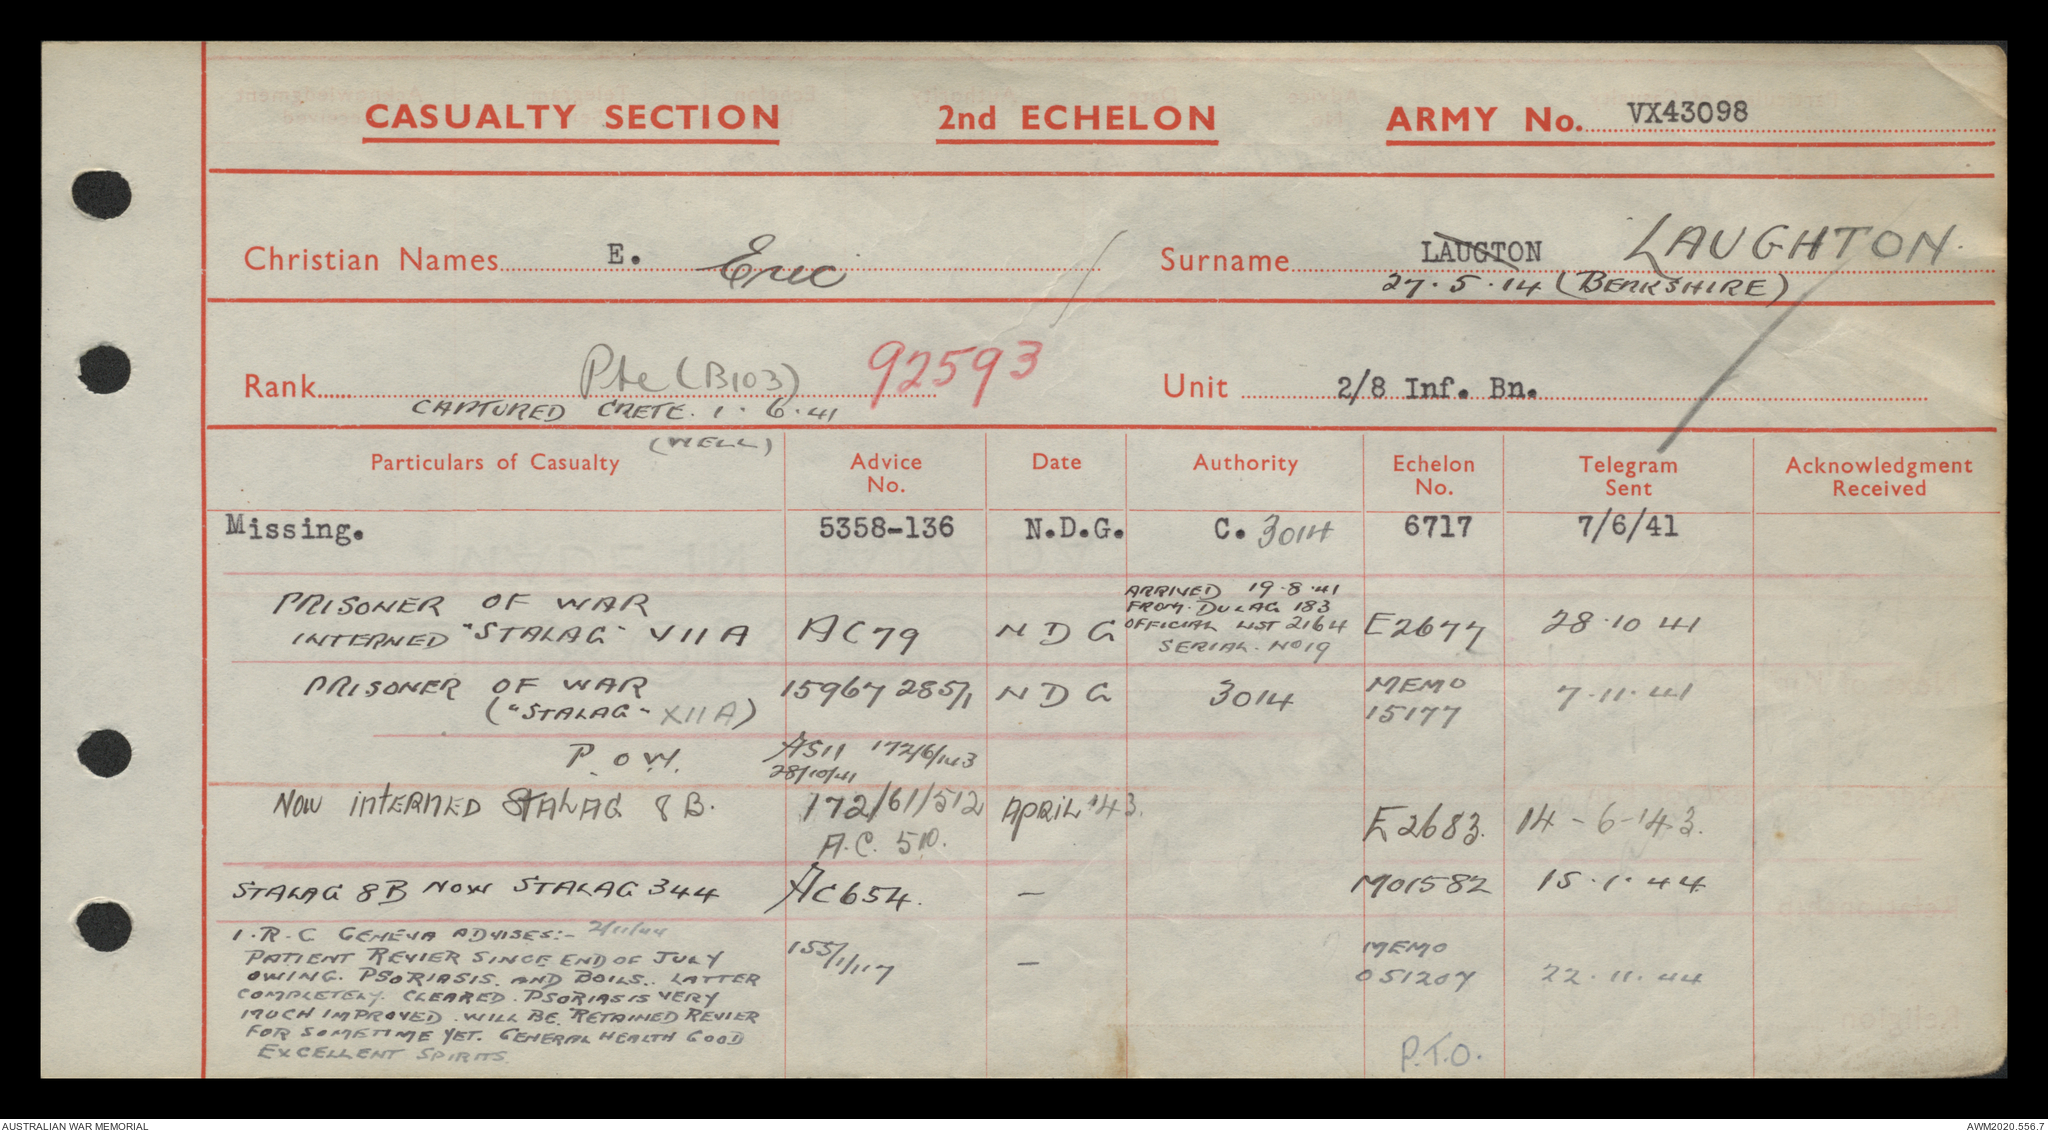 CASUALTY SECTION 2nd ECHELON ARMY No. VX43098
Christian Names E. Eric Surname LAUGTON LAUGHTON
27.5.14 (BERKSHIRE)
Rank Pte (B103) 92593 Unit 2/8 Inf. Bn.
CAPTURED CRETE. 1.6.41
(WELL)
Particulars of Casualty Advice No. Date Authority Echelon No. Telegram Sent Acknowledgment Received
Missing. 5358-136 N.D.G. C. 3014 6717 7/6/41
ARRIVED 19.8.41
PRISONER OF WAR FROM DULAG 183
INTERNED "STALAG" VIIA AC79 N D G OFFICIAL LIST 2164 E2677 28.10 41
SERIAL No 19
PRISONER OF WAR 15967 285/1 N D G 3014 MEMO 7.11.41
("STALAG" XIIA) 15177
P.O.W. AS11 172/6/143
28/10/41
Now interned STALAG 8B. 172/61/512 April '43. E2683. 14-6-43.
A.C. 510.
STALAG 8B NOW STALAG 344 AC654. — M01582 15.1.44
I.R.C GENEVA ADVISES:- 2/11/44 155/1/117 — MEMO
PATIENT REVIER SINCE END OF JULY 051207 22.11.44
OWING. PSORIASIS. AND BOILS. LATTER
COMPLETELY CLEARED. PSORIASIS VERY
MUCH IMPROVED. WILL BE RETAINED REVIER
FOR SOMETIME YET. GENERAL HEALTH GOOD
EXCELLENT SPIRITS.
P.T.O.
AUSTRALIAN WAR MEMORIAL AWM2020.556.7